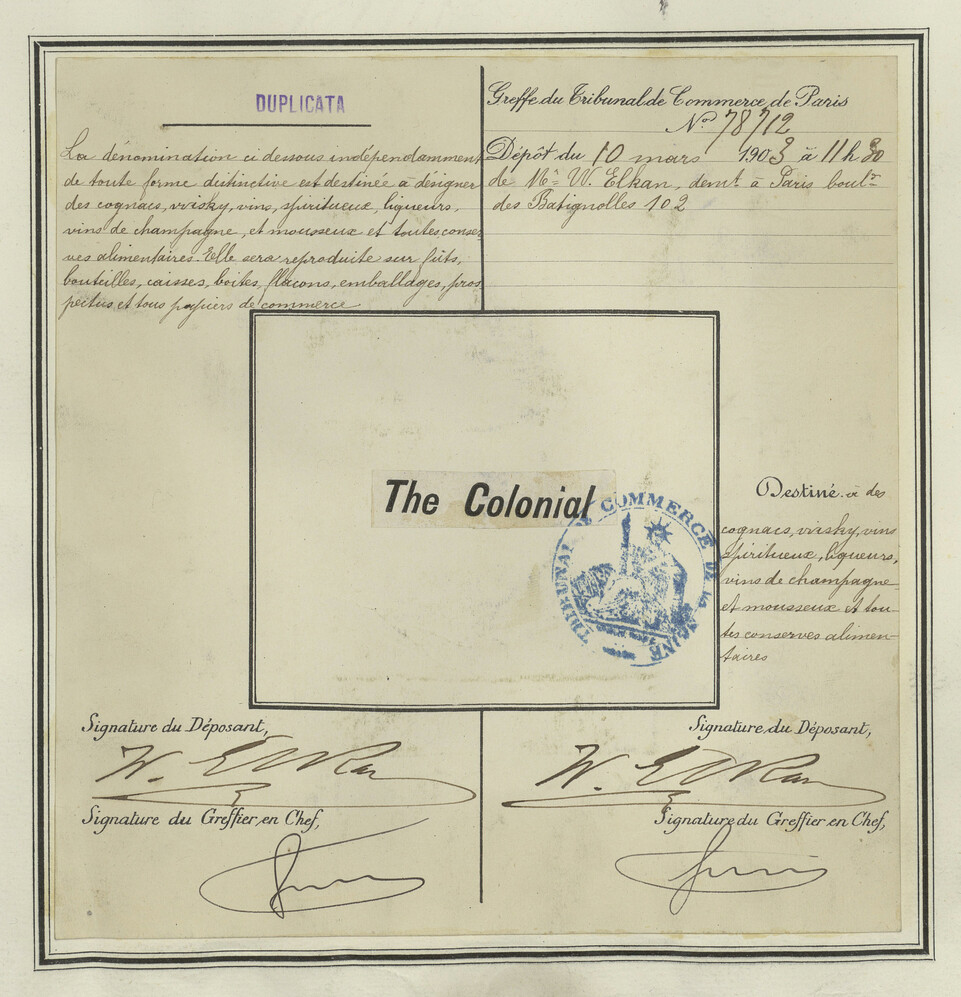 DUPLICATA
La dénomination ci dessous indépendamment
de toute forme distinctive est destinée à désigner
des cognacs, wisky, vins, spiritueux, liqueurs,
vins de champagne, et mousseux et toutes conser
ves alimentaires. Elle sera reproduite sur fûts,
bouteilles, caisses, boites, flacons, emballages, pros
pectus et tous papiers de commerce
Greffe du Tribunal de Commerce de Paris
No. 78712
Dépôt du 10 mars 1903 à 11 h 30
de Mr. W. Elkan, demt. à Paris boulr.
des Batignolles 102
The Colonial
TRIBUNAL DE COMMERCE DE LA SEINE
Destiné à des
cognacs, wisky, vins
spiritueux, liqueurs,
vins de champagne
et mousseux et tou-
tes conserves alimen-
taires
Signature du Déposant,
W. Elkan
Signature du Greffier en Chef,
Signature du Déposant,
W. Elkan
Signature du Greffier en Chef,